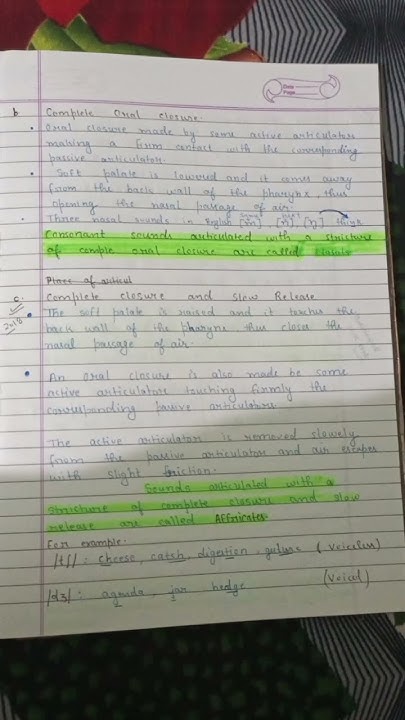 Date
Page
b Complete Oral closure.
• Oral closure made by some active articulators
making a firm contact with the corresponding
passive articulator.
• Soft palate is lowered and it comes away
from the back wall of the pharynx, thus
opening the nasal passage of air.
• Three nasal sounds in English [m], [n], [ŋ]
Consonant sounds articulated with a stricture
of comple oral closure are called
Place of articul
c. Complete closure and Slow Release
2018 • The soft palate is raised and it touches the
back wall of the pharynx thus closes the
nasal passage of air.
• An oral closure is also made be some
active articulators touching firmly the
corresponding passive articulators
The active articulator is removed slowly
from the passive articulators and air escapes
with slight friction.
Sounds articulated with a
stricture of complete closure and slow
release are called Affricates
For example.
/tʃ/ : cheese, catch, digestion,
/dʒ/ : jar hedge